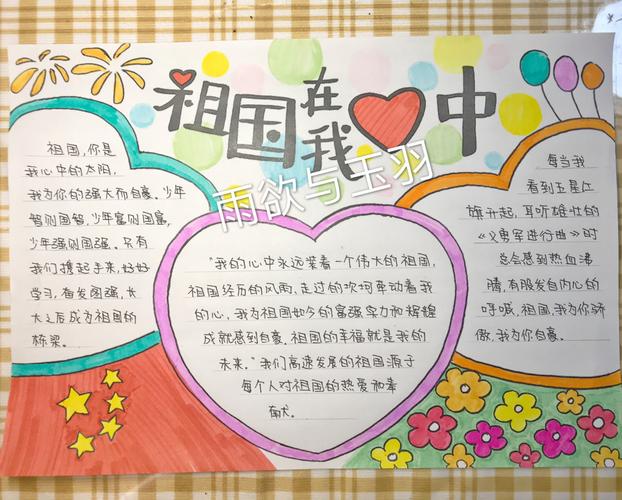 祖国在我心中
雨欲与玉羽
祖国,你是
我心中的太阳,
我为你的强大而自豪。少年
智则国智,少年富则国富,
少年强则国强。只有
我们携起手来,好好
学习,奋发图强,长
大之后成为祖国的
栋梁。
"我的心中永远装着一个伟大的祖国,
祖国经历的风雨,走过的坎坷牵动着我
的心,我为祖国如今的富强实力和辉煌
成就感到自豪。祖国的幸福就是我的
未来。"我们高速发展的祖国源于
每个人对祖国的热爱和奉
献。
每当我
看到五星红
旗升起,耳听雄壮的
《义勇军进行曲》时
总会感到热血沸
腾,有股发自内心的
呼喊,祖国,我为你骄
傲,我为你自豪。